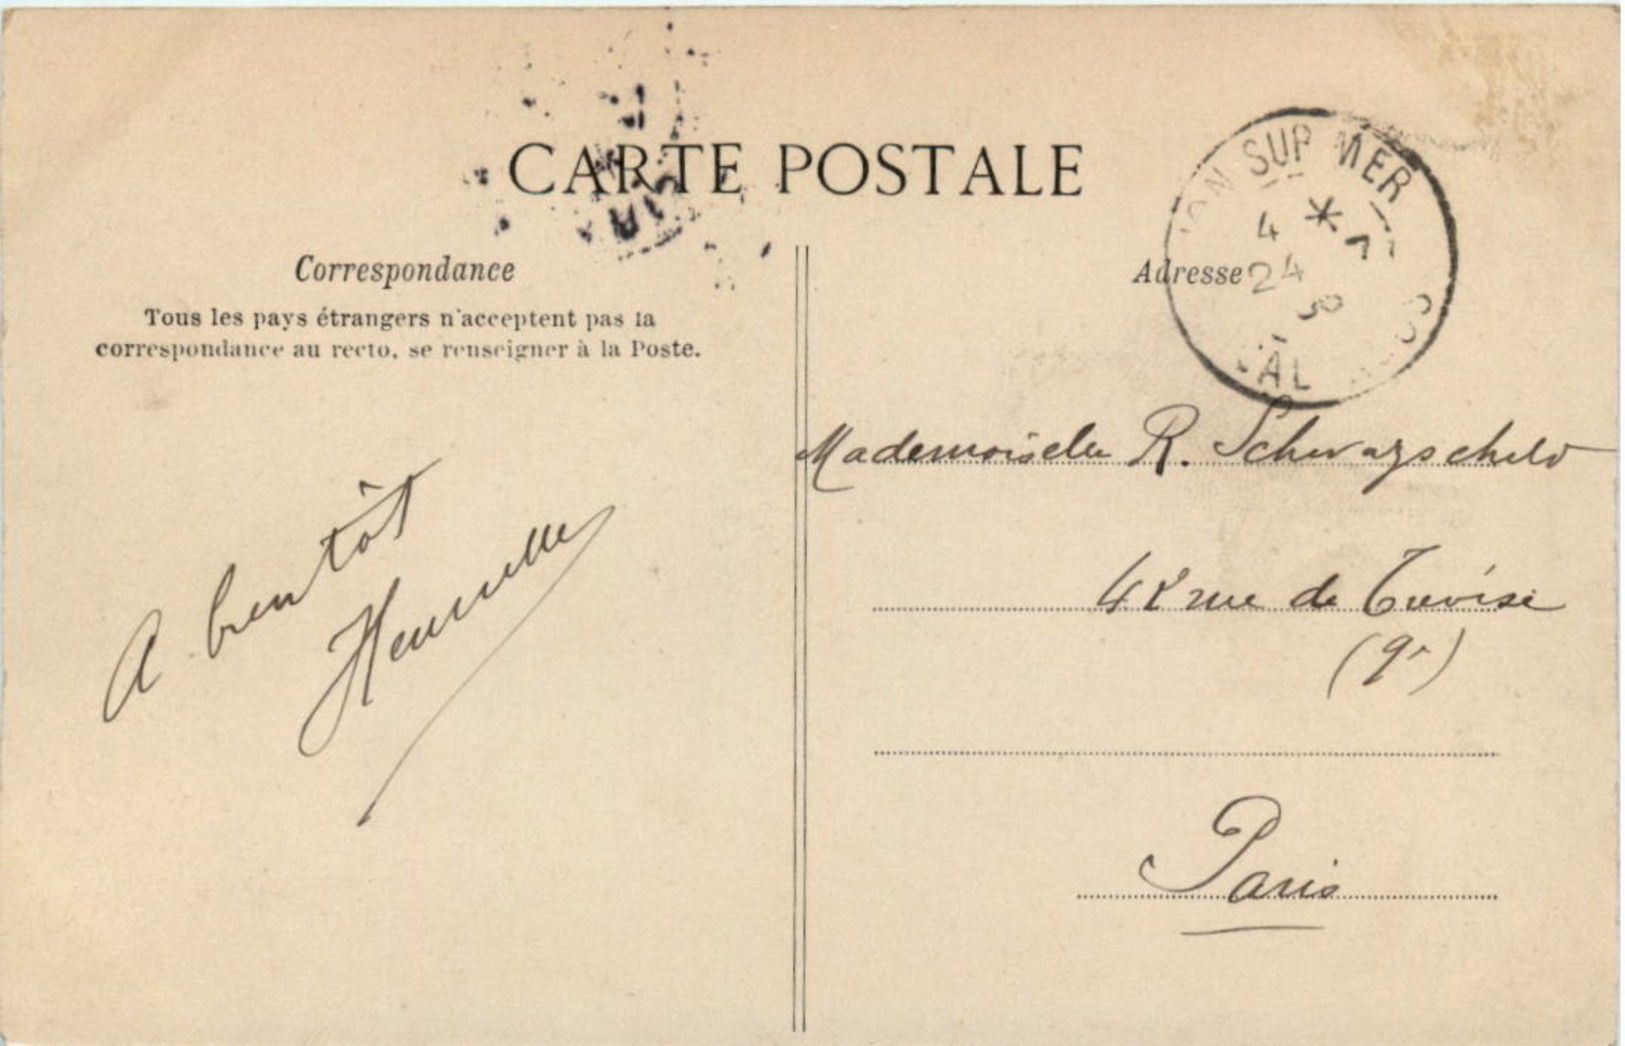 CARTE POSTALE
Correspondance
Tous les pays étrangers n'acceptent pas la
correspondance au recto, se renseigner à la Poste.
Adresse
SUR MER
4 *
24
A bientôt
Mademoiselle R. Schwarzschild
42 rue de Trévise
(9e)
Paris